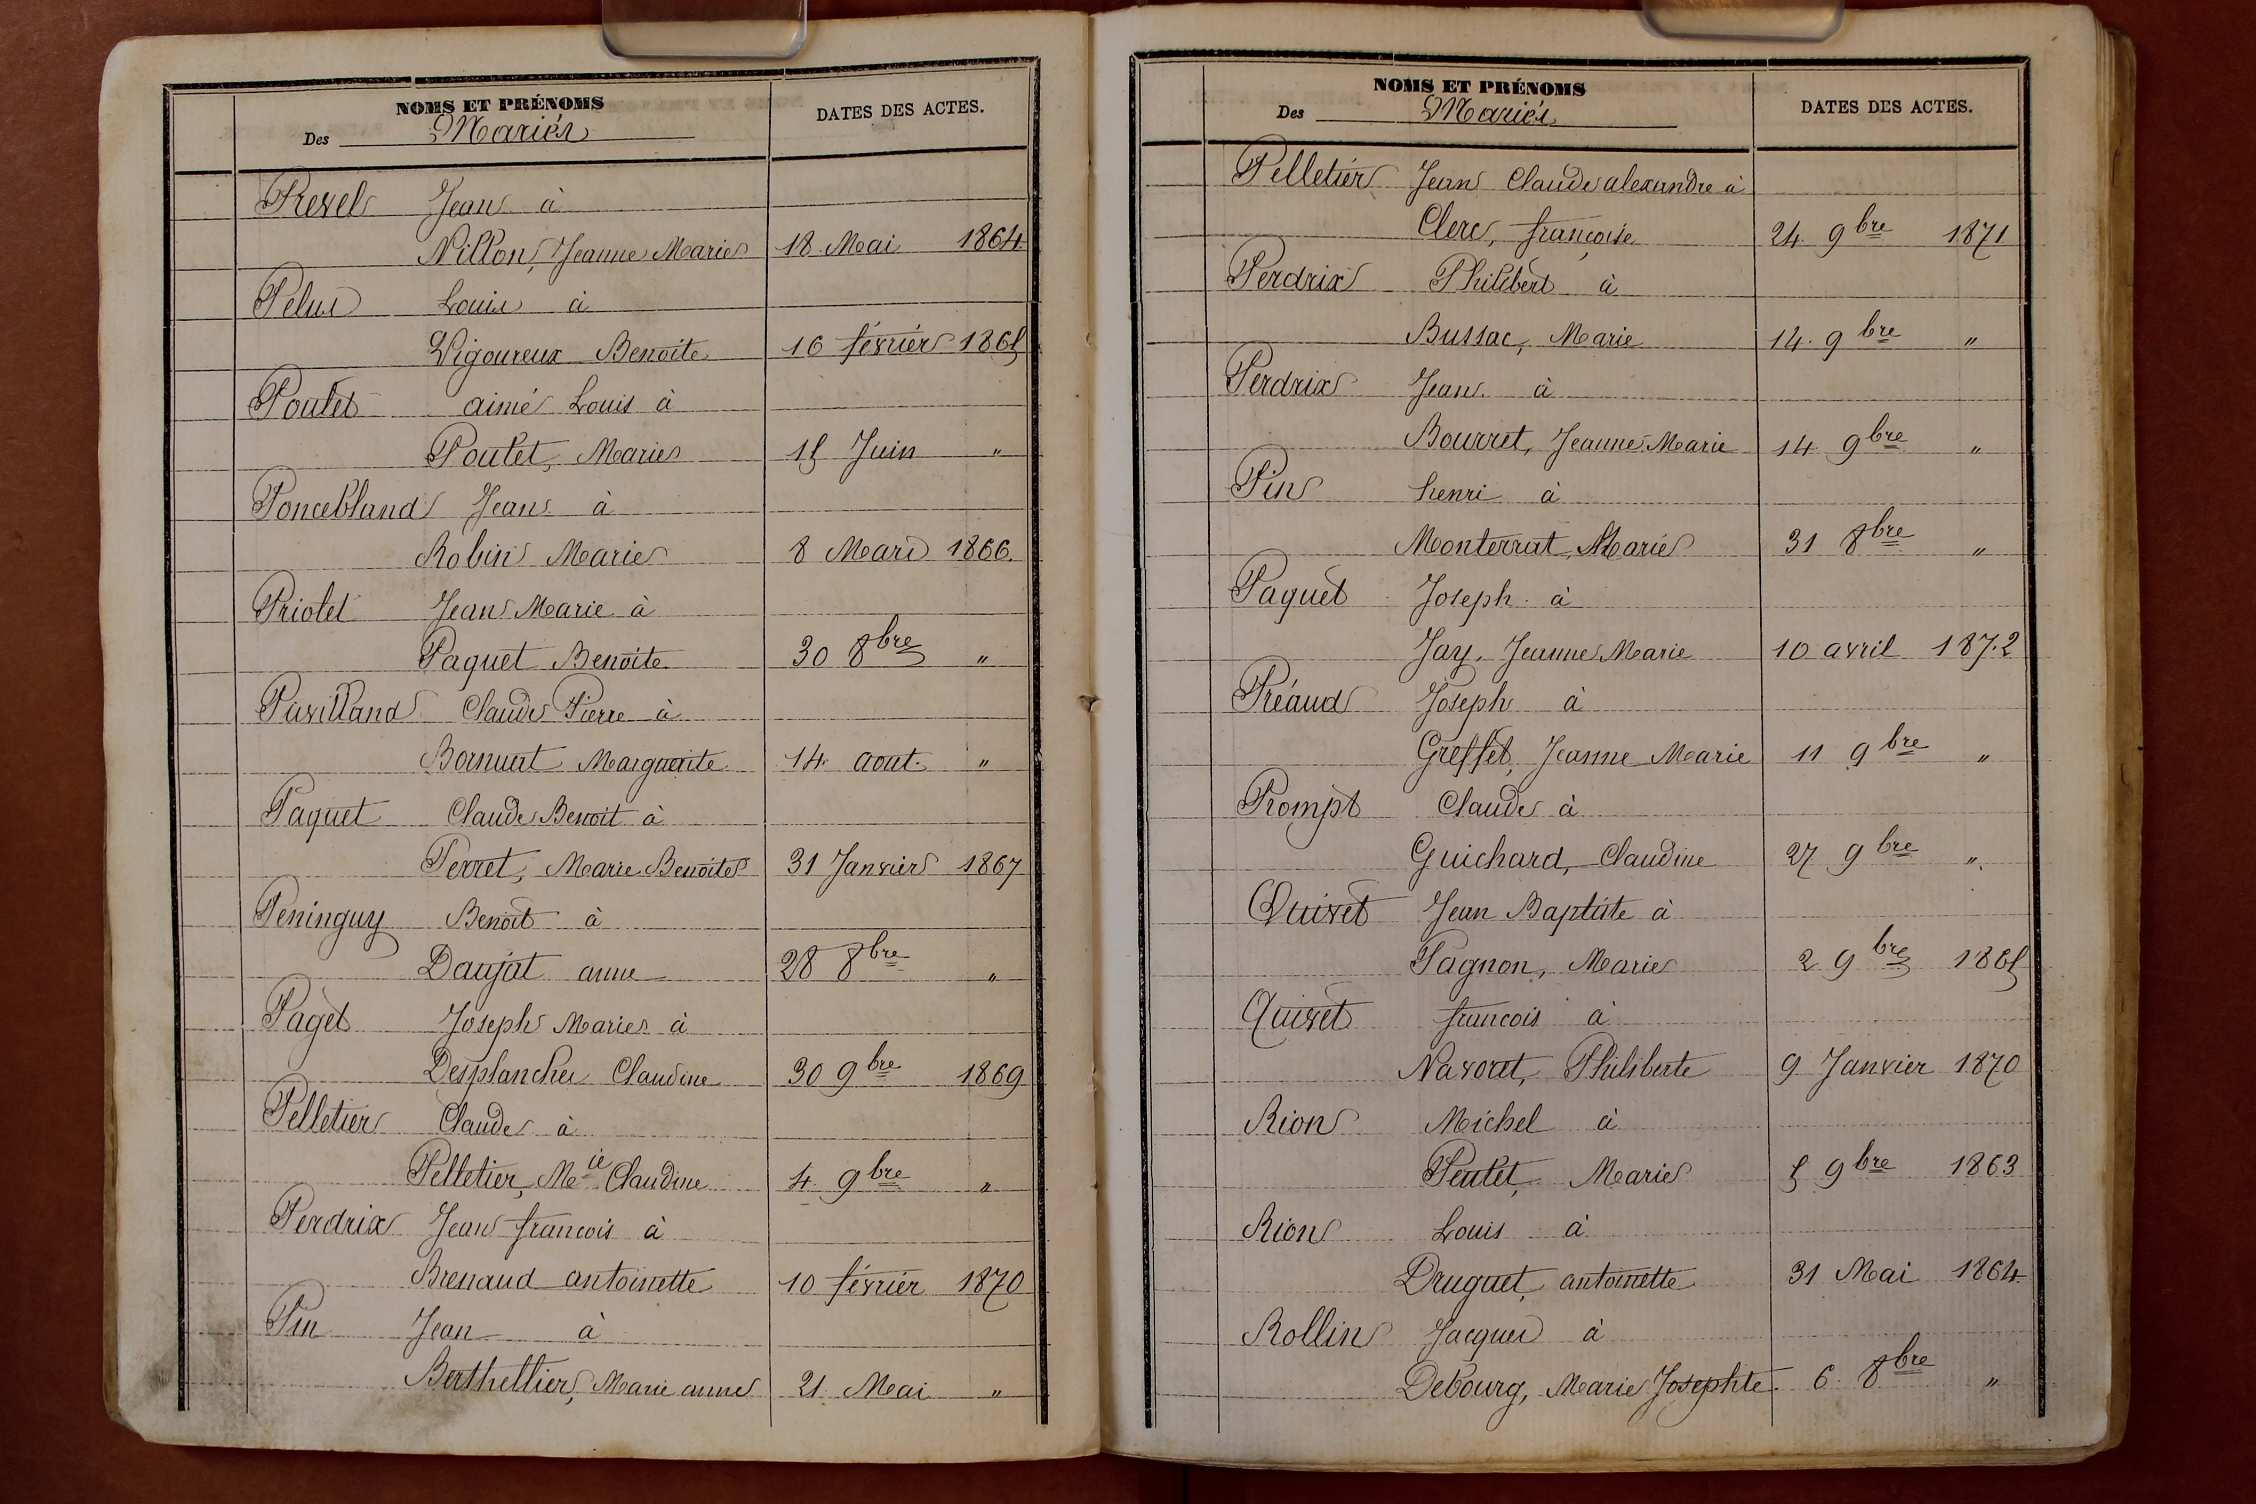 NOMS ET PRÉNOMS
Des Mariés
DATES DES ACTES.
Revel Jean à
Nillon, Jeanne Marie 18 Mai 1864
Pelus Louis à
Vigoureux Benoite 16 février 1865
Poulet aimé Louis à
Poulet, Marie 15 Juin "
Poncebland Jean à
Robin Marie 8 Mars 1866.
Priolet Jean Marie à
Paquet Benoite 30 8bre "
Puvilland Claude Pierre à
Bornuat Marguerite 14 aout. "
Paquet Claude Benoit à
Perret, Marie Benoite 31 Janvier 1867
Peninguy Benoit à
Daujat anne 28 8bre "
Paget Joseph Marie à
Desplanches Claudine 30 9bre 1869
Pelletier Claude à
Pelletier, Mie Claudine 4 9bre "
Perdrix Jean francois à
Brenaud antoinette 10 février 1870
Pin Jean à
Berthellier, Marie anne 21 Mai "
NOMS ET PRÉNOMS
Des Mariés
DATES DES ACTES.
Pelletier Jean Claude alexandre à
Clerc, françoise 24 9bre 1871
Perdrix Philibert à
Bussac, Marie 14. 9bre "
Perdrix Jean à
Bourret, Jeanne Marie 14 9bre "
Pin henri à
Monterrat, Marie 31 8bre "
Paquet Joseph à
Jay, Jeanne Marie 10 avril 1872
Préaud Joseph à
Greffet, Jeanne Marie 11 9bre "
Prompt Claude à
Guichard, Claudine 27 9bre "
Quivet Jean Baptiste à
Pagnon, Marie 2 9bre 1865
Quivet francois à
Navoret, Philiberte 9 Janvier 1870
Rion Michel à
Peulet, Marie 5 9bre 1863
Rion Louis à
Druguet, antoinette 31 Mai 1864
Rollin Jacques à
Debourg, Marie Josephte. 6 8bre "